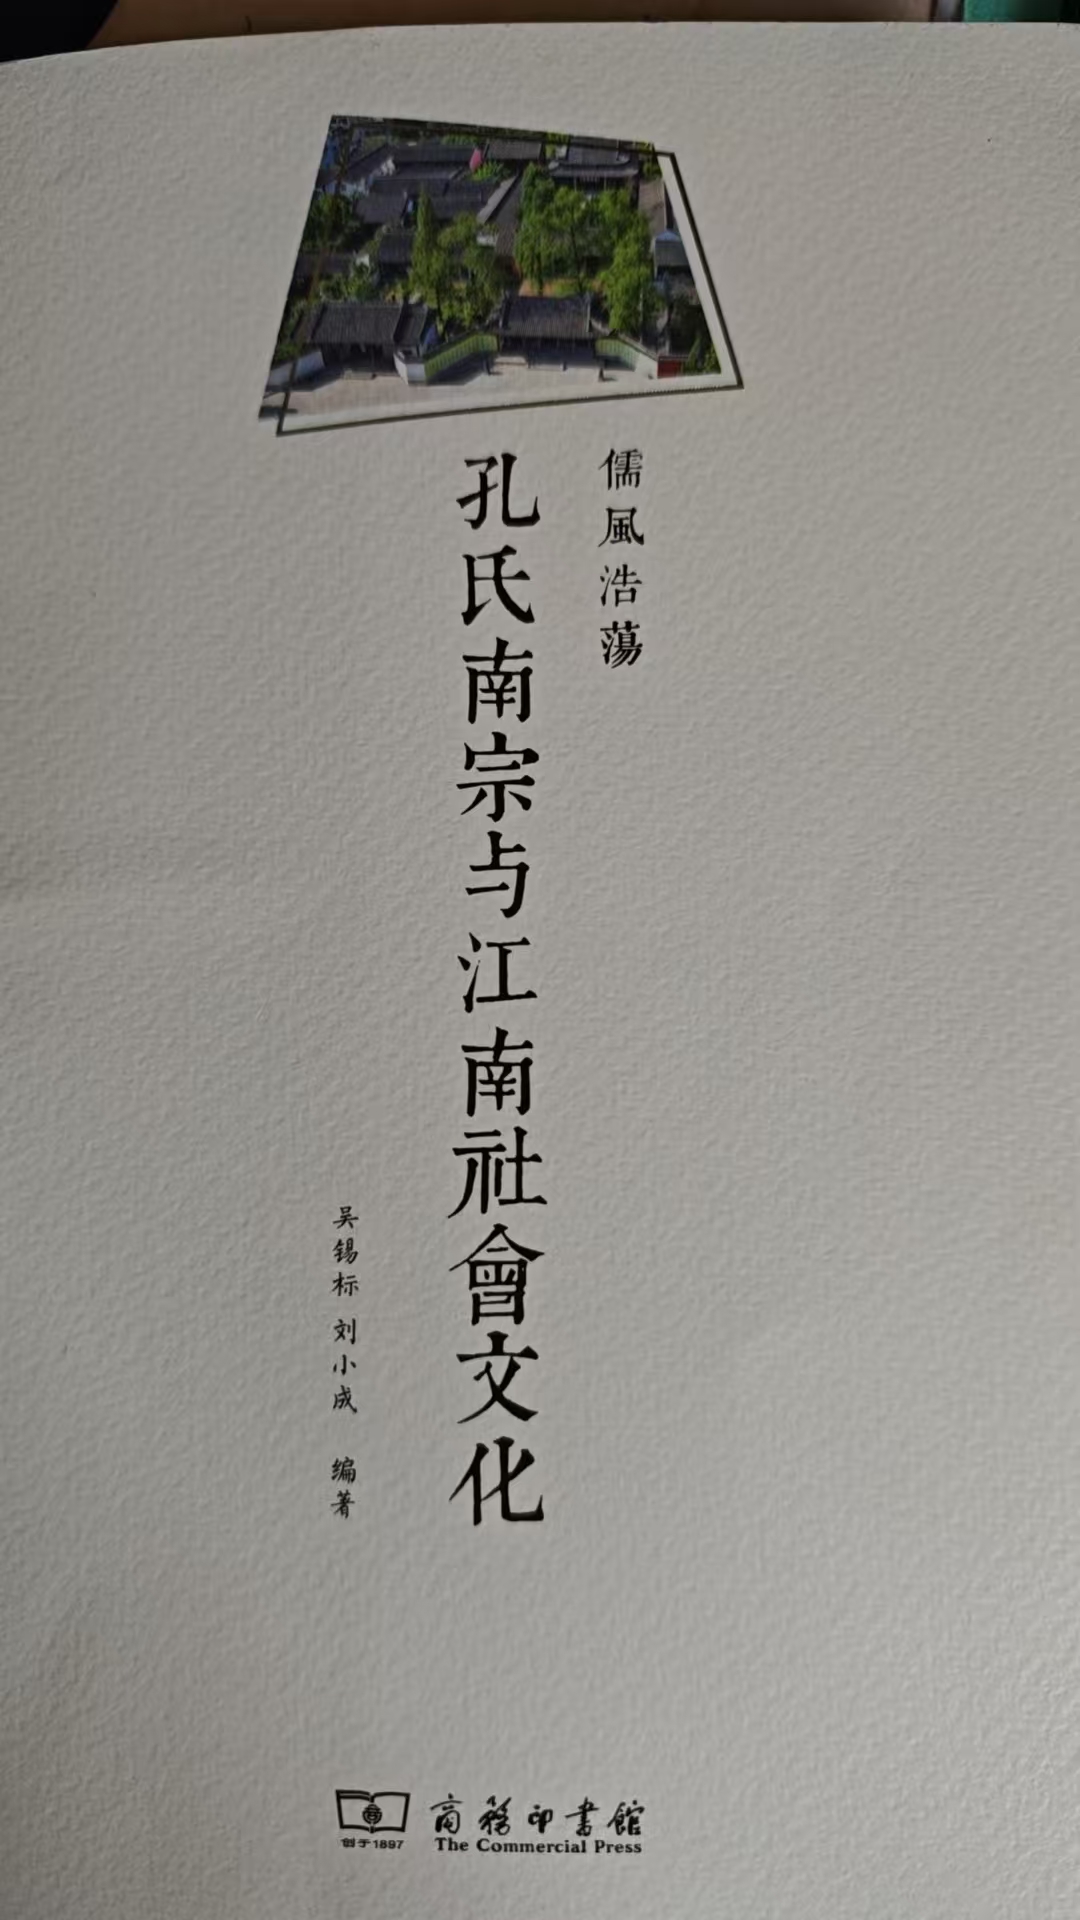 儒風浩蕩
孔氏南宗与江南社會文化
吴锡标 刘小成 编著
创于1897
商務印書館
The Commercial Press